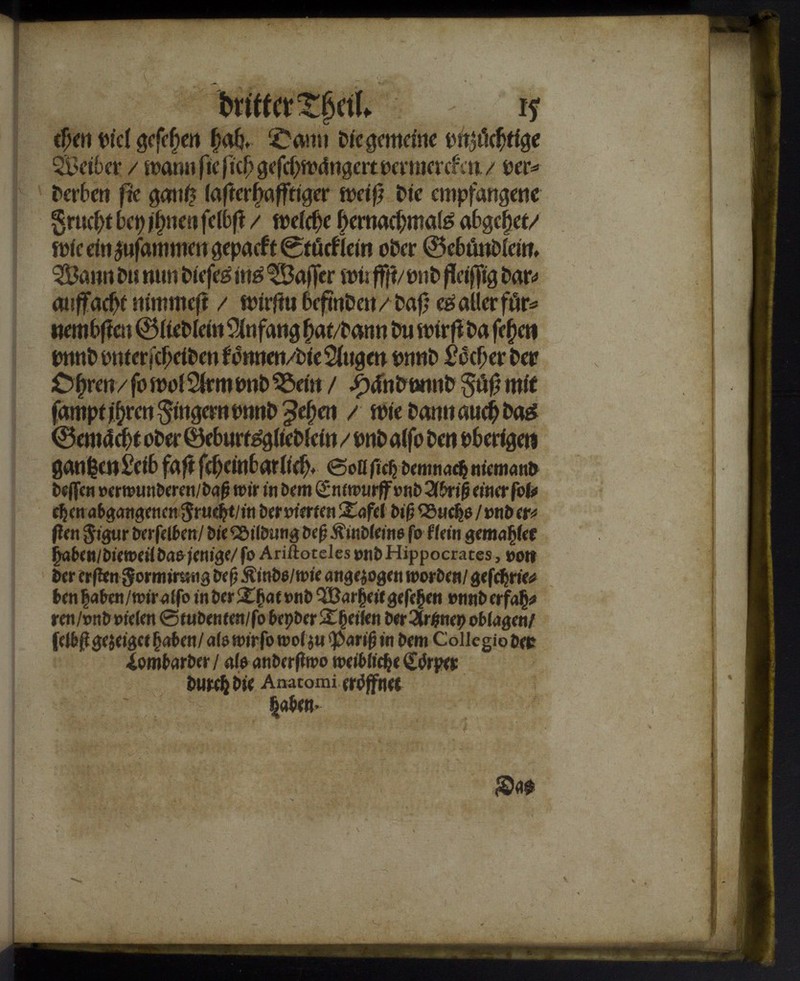 dritter Theil. 15
chen viel gesehen hab. Dann die gemeine vnzüchtige
Weiber / wann sie sich geschwängert vermercken / ver-
derben sie gantz lasterhafftiger weiß die empfangene
Frucht bey jhnen selbst / welche hernachmals abgehet/
wie ein zusammen gepackt Stücklein oder Gebündlein.
Wann du nun dieses ins Wasser wirffst/vnd fleissig dar-
auff acht nimmest / wirstu befinden / daß es aller für-
nembsten Gliedlein Anfang hat/dann du wirst da sehen
vnnd vnterscheiden können/die Augen vnnd Löcher der
Ohren / so wol Arm vnd Bein / Händ vnnd Füß mit
sampt jhren Fingern vnnd Zehen / wie dann auch das
Gemächt oder Geburtsgliedlein / vnd also den vberigen
gantzen Leib fast scheinbarlich. Soll sich demnach niemand
dessen verwunderen/daß wir in dem Entwurff vnd Abriß einer sol-
chen abgangenen Frucht/in der vierten Tafel diß Buchs / vnd er-
sten Figur derselben/ die Bildung deß Kindleins so klein gemahlet
haben/dieweil das jenige/ so Aristoteles vnd Hippocrates, von
der ersten Formirung deß Kinds/wie angezogen worden/ geschrie-
ben haben/wir also in der That vnd Warheit gesehen vnnd erfah-
ren/vnd vielen Studenten/so bey der Theilen der Artzney oblagen/
selbst gezeiget haben/ als wir so wol zu Pariß in dem Collegio der
Lombarder / als anderstwo weibliche Cörper
durch die Anatomi eröffnet
haben.
Das